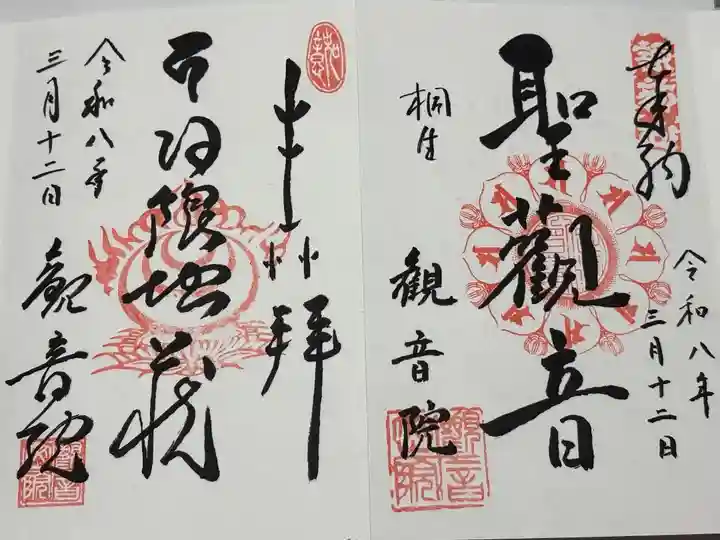 奉納
令和八年
三月十二日
聖觀音
桐生
観音院
拝
日限地蔵
令和八年
三月十二日
観音院